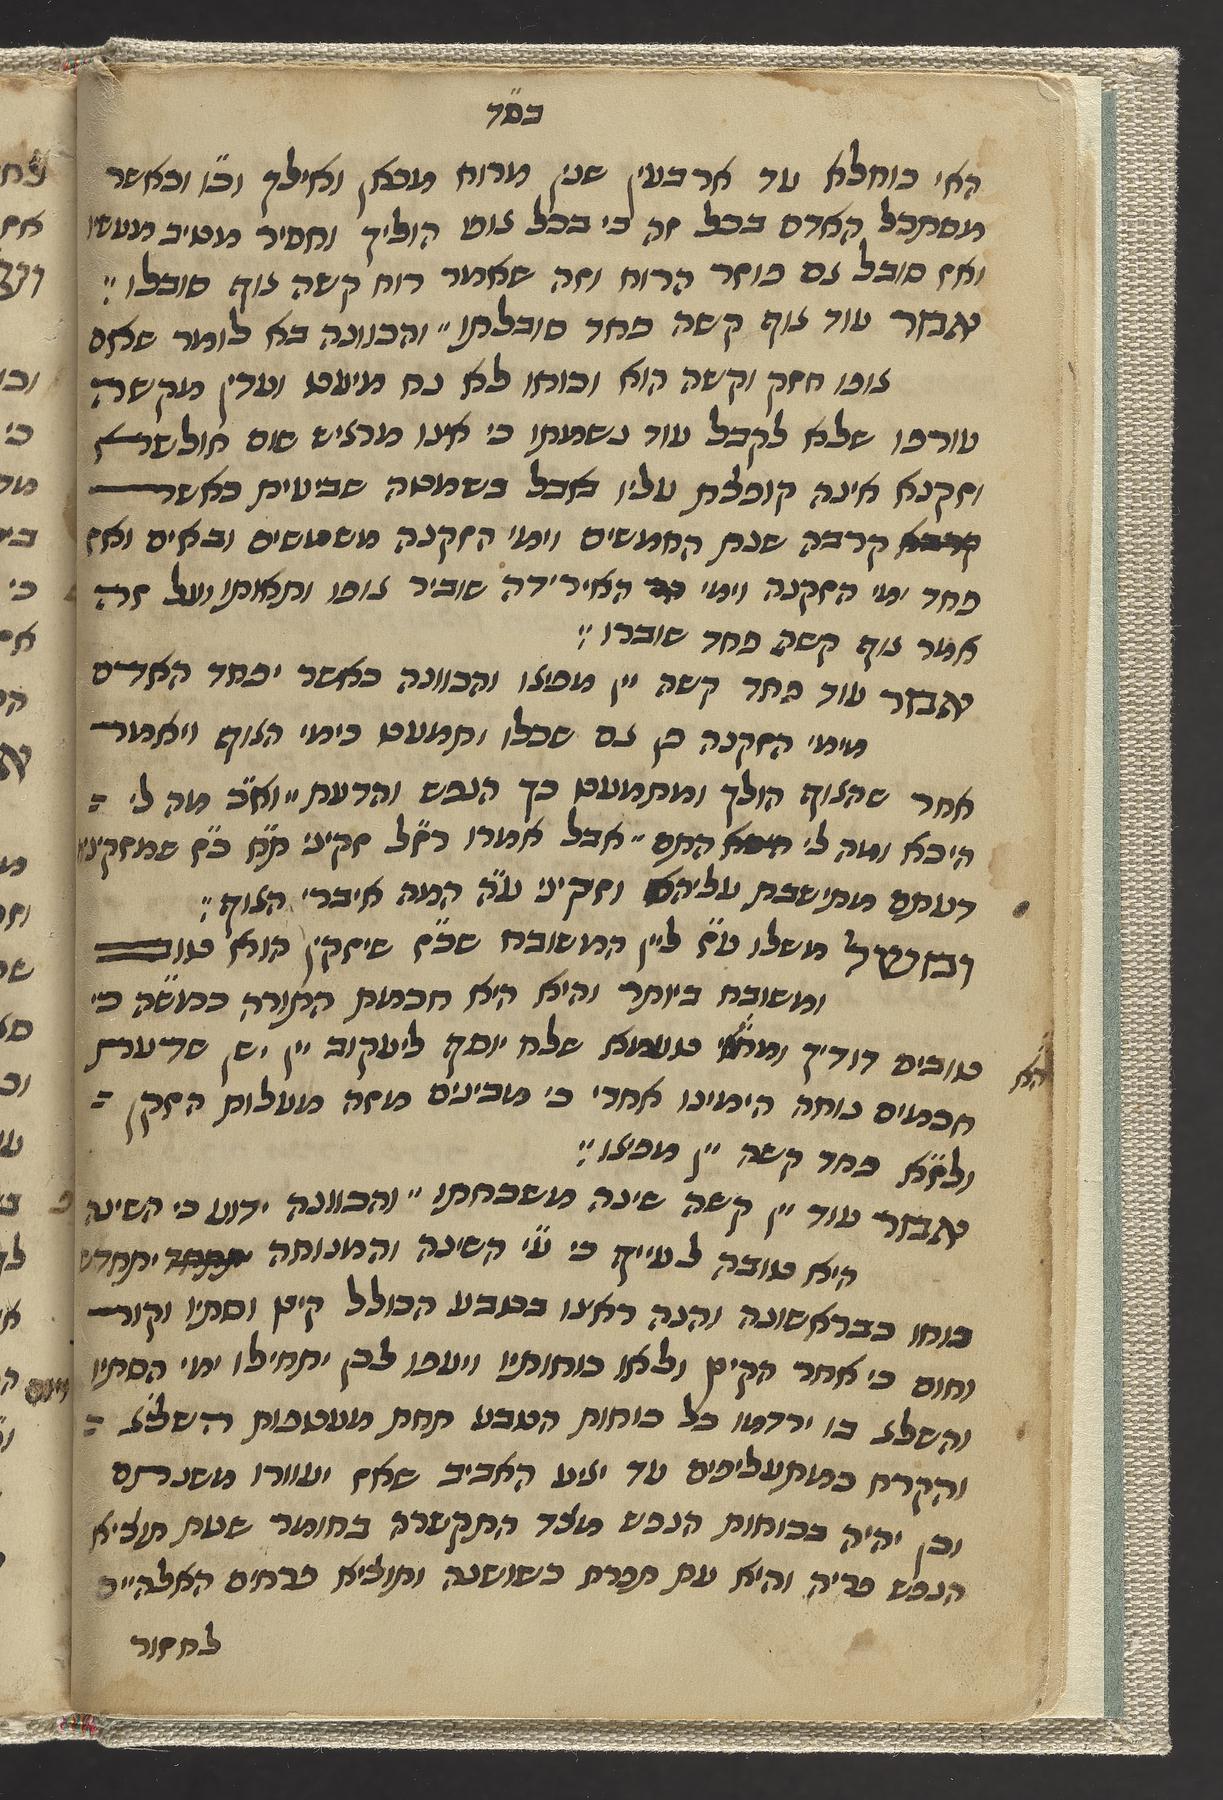 בס״ד
האי כוחלא עד ארבעין שנין מרוח מכאן ואילך וכ״ו וכאשר
מסתכל האדם בכל זה כי בכל צום הוליך וחסיר מטיב מעשיו
ואז סובל גם פוזר הרוח וזה שאמר רוח קשה גוף סובלו :
אמר עוד גוף קשה פחד סובלתו ״ והכוונה בא לומר שאם
גופו חזק וקשה הוא וכוחו לא נח מיעט ועדין מקשה
עורפו שלא לקבל עוד נשמתו כי אינו מרגיש שום חולשא
וזקנא אינה קופצת עליו אבל בשמטה שביעית כאשר
קרבה שנת החמשים וימי הזקנה משמשים ובאים ואז
פחד ימי הזקנה וימי האירידה שוביר גופו ותאותו ועל זה
אמר גוף קשה פחד שוברו :
אמר עוד פחד קשה יין מפיגו והכוונה כאשר יפחד האדם
מימי הזקנה פן גם שכלו יתמעט כימי הגוף ויאמר
אחר שהגוף הולך ומתמעט כך הנפש והדעת ״ וא״כ מה לי =
היכא ומה לי התם ״ אבל אמרו רז״ל זקיני ת״ח כ״ז שמזקינין
דעתם מתישבת עליהם וזקיני ע״ה המה איברי הגוף :
ומשל משלו ט״ז ליין המשובח שכ״ז שיזקין הוא טוב
ומשובח ביותר והיא היא חכמת התורה כמש״ה כי
טובים דודיך ומהאי טעמא שלח יוסף ליעקוב יין ישן שדעת
חכמים נוחה הימינו אחרי כי מבינים מזה מעלות הזקן =
ולז״א פחד קשה יין מפיגו :
אמר עוד יין קשה שינה משכחתו ״ והכוונה ידוע כי השינה
היא טובה לעייף כי ע״י השינה והמנוחה יתחדש
כוחו כבראשונה והנה ראינו בטבע הכולל קיץ וסתיו וקור
וחום כי אחר הקיץ ולאו כוחותיו ויעפו לכן יתחילו ימי הסתיו
והשלג בו ירדמו כל כוחות הטבע תחת מעטפות השלג =
והקרח כמתעליפים עד יגיע האביב שאז יעוורו משנתם
וכן יהיה בכוחות הנפש מצד התקשרה בחומר שטת תוציא
הנפש פריה והיא עת תפרח כשושנה ותוציא פרחים האלהיים
לחזור